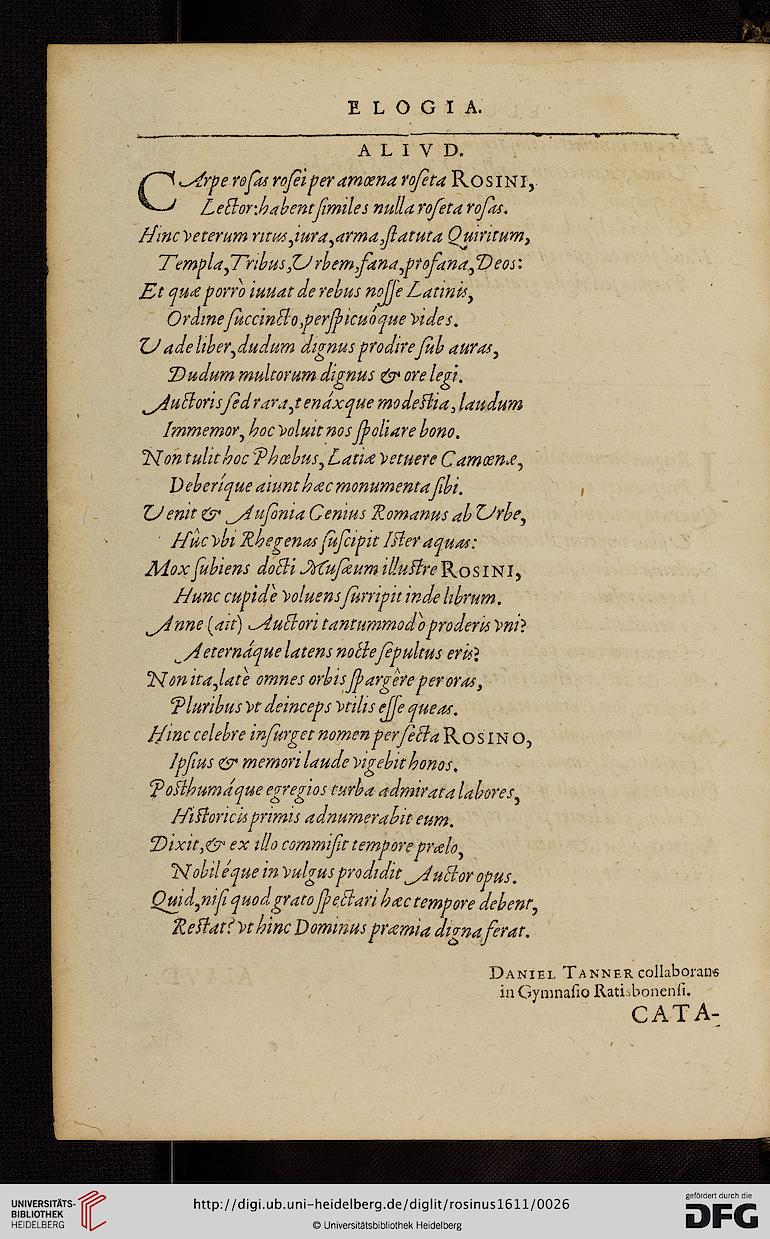 ELOGIA.
ALIVD.
CArpe roſas roſei per amœna roſeta ROSINI,
Lector: habent ſimiles nulla roſeta roſas.
Hinc veterum ritus, iura, arma, ſtatuta Quiritum,
Templa, Tribus, Urbem, fana, profana, Deos:
Et quæ porrò iuuat de rebus noſſe Latinis,
Ordine ſuccincto, perſpicuóque vides.
Vade liber, dudum dignus prodire ſub auras,
Dudum multorum dignus & ore legi.
Auctoris ſed rara, tenáxque modeſtia, laudum
Immemor, hoc voluit nos ſpoliare bono.
Non tulit hoc Phœbus, Latiæ vetuere Camœnæ,
Deberíque aiunt hæc monumenta ſibi.
Venit & Auſonia Genius Romanus ab Urbe,
Hûc vbi Rhegenas ſuſcipit Iſter aquas:
Mox ſubiens docti Muſæum illuſtre ROSINI,
Hunc cupidè voluens ſurripit inde librum.
Anne (ait) Auctori tantummodò proderis vni?
Aeternáque latens nocte ſepultus eris?
Non ita, latè omnes orbis ſpargêre per oras,
Pluribus vt deinceps vtilis eſſe queas.
Hinc celebre inſurget nomen per ſecla ROSINO,
Ipſius & memori laude vigebit honos.
Poſthumáque egregios turba admirata labores,
Hiſtoricis primis adnumerabit eum.
Dixit, & ex illo commiſit tempore prælo,
Nobiléque in vulgus prodidit Auctor opus.
Quid, niſi quod grato ſpectari hæc tempore debent,
Reſtat? vt hinc Dominus præmia digna ferat.
DANIEL TANNER collaborans
in Gymnaſio Ratisbonenſi.
CATA-
UNIVERSITÄTS-
BIBLIOTHEK
HEIDELBERG
http://digi.ub.uni-heidelberg.de/diglit/rosinus1611/0026
© Universitätsbibliothek Heidelberg
gefördert durch die
DFG